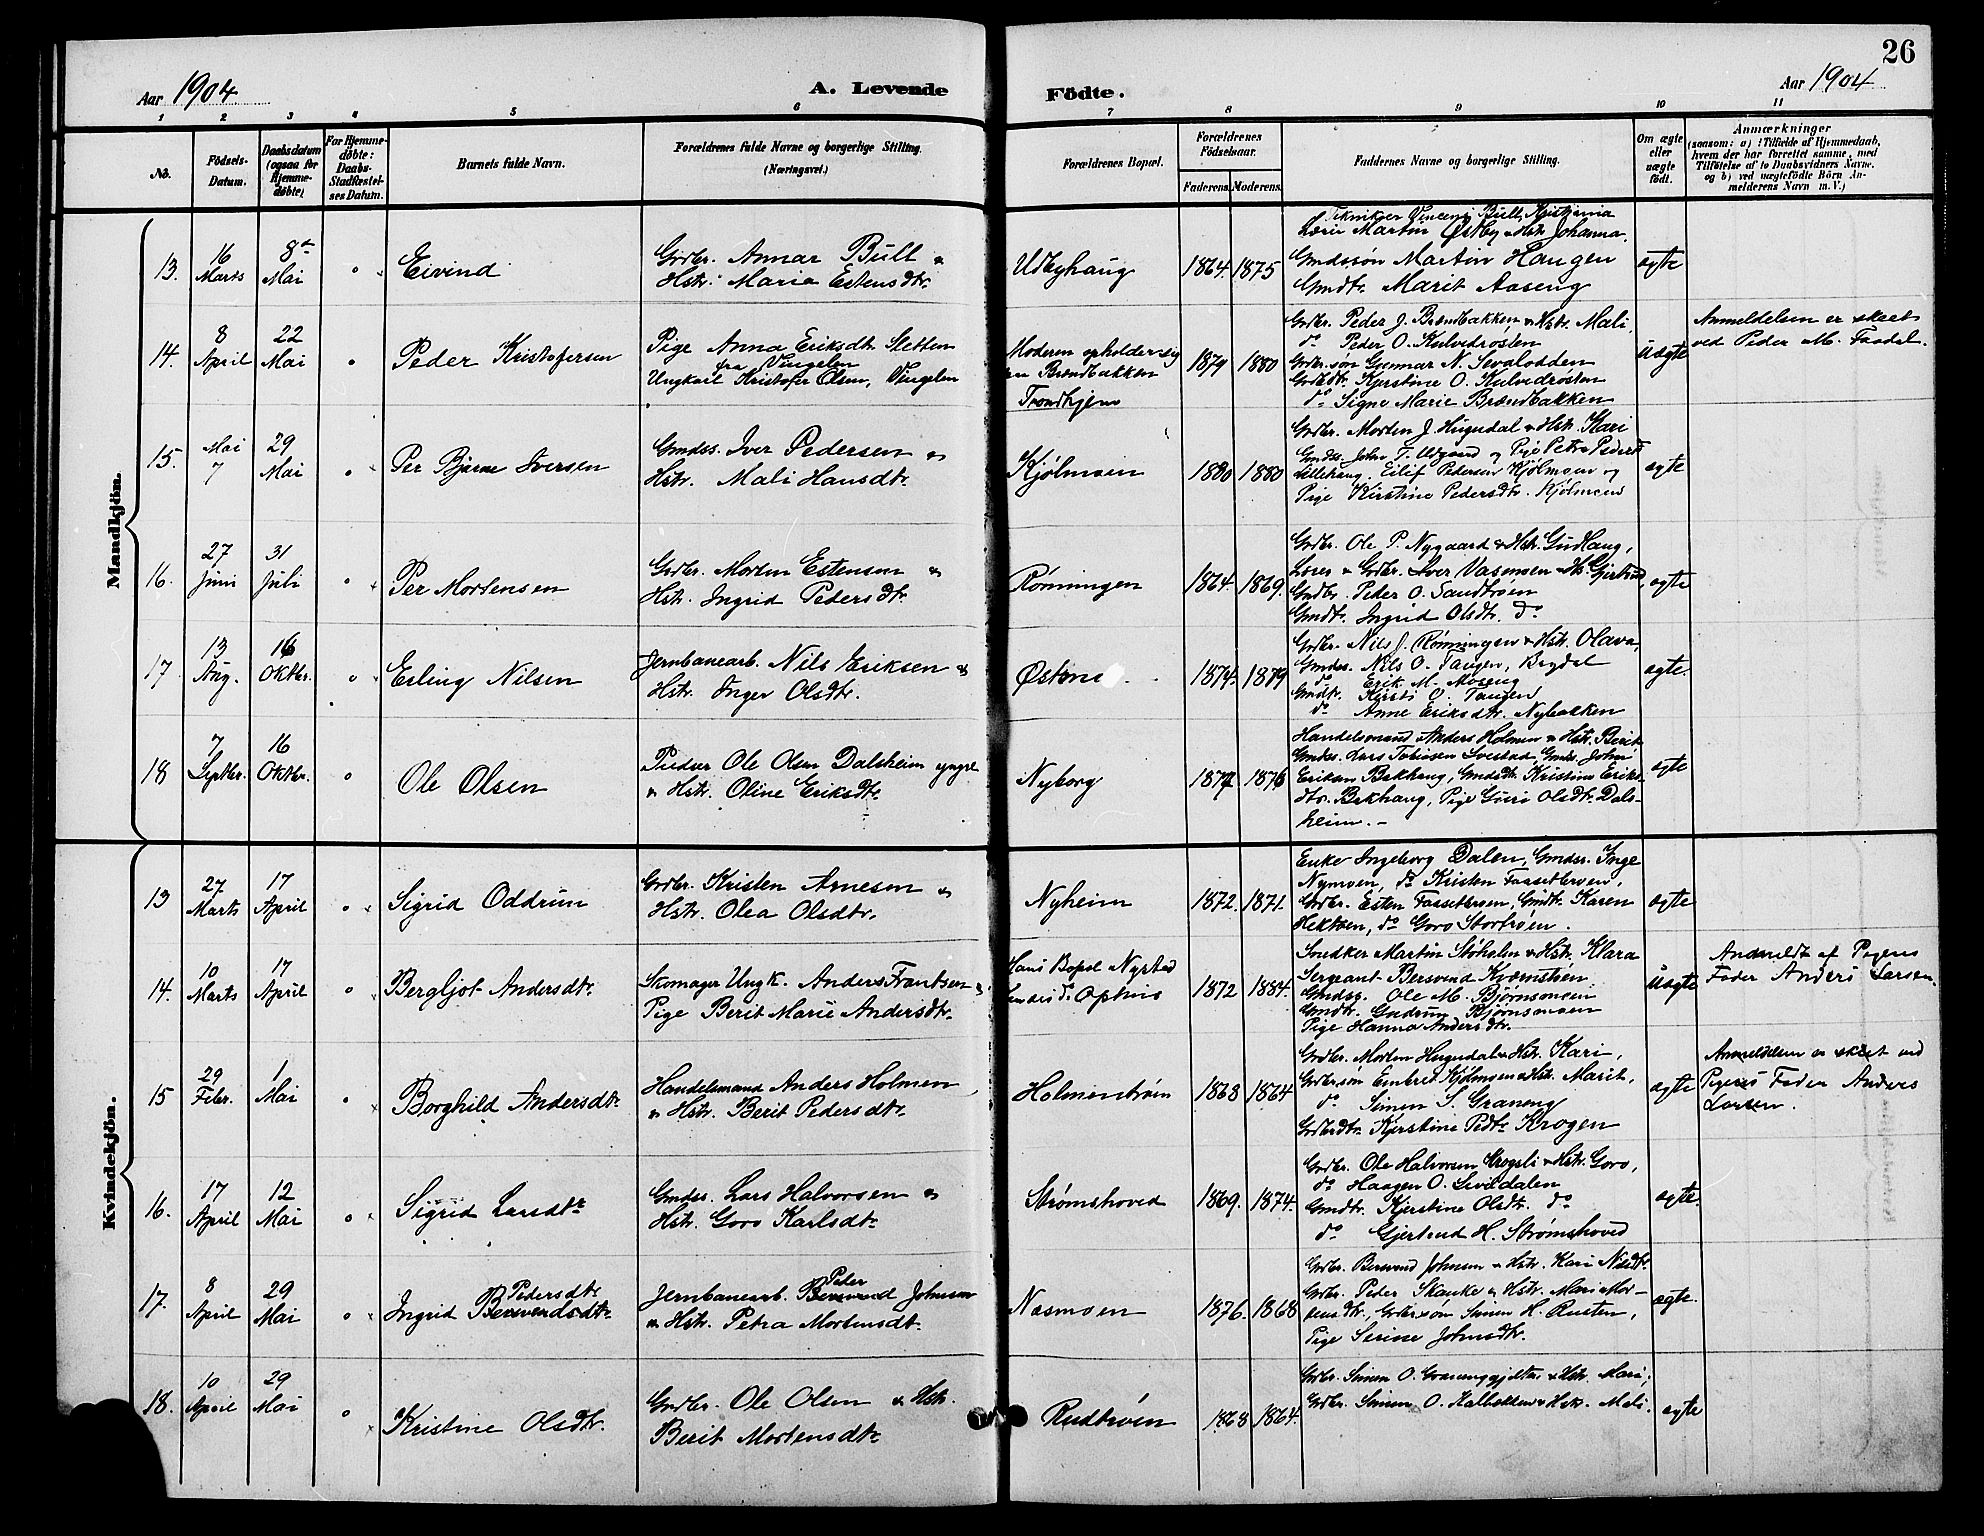 26
Aar 1904
A. Levende
Födte.
Aar 1904
1 2 3 4 5 6 7 8 9 10 11
No.
Födsels-
Datum.
Daabsdatum
(ogsaa for
Hjemme-
døbte)
For Hjemme-
døbte:
Daabs-
Stadfæstel-
ses Datum.
Barnets fulde Navn.
Forældrenes fulde Navne og borgerlige Stilling.
(Næringsvei.)
Forældrenes Bopæl.
Forældrenes
Födselsaar.
Faderens. Moderens.
Faddernes Navne og borgerlige Stilling.
Om ægte
eller
uægte
født.
Anmærkninger
(saasom: a) i Tilfælde af Hjemmedaab,
hvem der har forrettet samme, med
Tilføielse af to Daabsvidners Navne.
og b) ved uægtefödte Börn An-
melderens Navn m. V.)
Mandkjön.
13.
16
Marts
8de
Mai
Eivind
Grdbr. Annar Bull &
Hstr. Maria Estensdtr.
Udbyhaug
1864. 1875
Tekniker Vincent Bull, Kristiania
Lærer Martin Østby & Hstr. Johanna.
Gmdssøn Martin Haugen
Gmdtr. Marit Aaseng
ægte
14.
8
April
22
Mai
Peder Kristofersen
Pige Anna Eriksdtr. Sletten
fra Vingelen
Ungkarl Kristofer Olsen, Vingelen
Moderen opholder sig
Brændbakken
Trondhjem
1879 1880
Grdbr. Peder J. Brændbakken & Hstr. Mali.
do Peder O. Kulvedrosten
Grdbr.søn Gunnar N. Sevalodden
Grdbdtr. Kjerstine O. Kulvedrøsten
do Signe Marie Brændbakken
uægte
Anmeldelsen er skeet
ved Peder M. Faadal.
15.
Mai
7
29
Mai
Per Bjarne Iversen
Gmdss. Iver Pedersen &
Hstr. Mali Hansdtr.
Kjølmoen
1880 1880
Grdbr. Morten J. Hugudal & Hstr. Kari
Gmdss. John T. Udgaard og Pige Petra Pedersd.
Lillehaug, Eilif Pedersen Kjølmoen og
Pige Kirstine Pedersdtr. Kjølmoen
ægte
16.
27
Juni
31
Juli
Per Mortensen
Grdbr. Morten Estensen &
Hstr. Ingrid Pedersdtr.
Rønningen
1864. 1869.
Grdbr. Ole P. Nygaard & Hstr. Gudlaug,
Lærer & Grdbr. Iver Vasmoen & Hs. Gjertrud,
Gmdbr. Peder O. Sandtrøen
Gmdtr. Ingrid Olsdtr. do
ægte
17.
13
Aug.
16
Oktbr.
Erling Nilsen
Jernbanearb. Nils Eriksen &
Hstr. Inger Olsdtr.
1874. 1879
Grdbr. Nils J. Rønningen & Hstr. Olava,
Gmdss. Nils O. Tangen, Brydal
do Erik M. Moseng
Gmdtr. Kirsti O. Tangen
do Anne Eriksdtr. Nybakken
ægte.
18
7
Septbr.
16
Oktbr.
Ole Olsen
Pudser Ole Olsen Dalsheim yngre
& Hstr. Oline Eriksdtr.
Nyborg
1877 1876
Handelsmand Anders Holmen & Hstr. Berit
Gmdss. Lars Tobiasen Svestad, Gmds. John
Eriksen Bakhaug, Gmdsdtr. Kristine Eriks-
dtr. Bakhaug, Pige Guri Olsdtr. Dals-
heim. –
ægte
Kvindekjön.
13
27
Marts
17
April
Sigrid Oddrun
Grdbr. Kristen Arnesen &
Hstr. Olea Olsdtr.
Nyheim
1872. 1871.
Enke Ingeborg Dalen, Gmdss. Inge
Nymoen, do Kristen Fossettrøen,
Grdbr. Esten Fossettrøen, Gmdtr. Karen
Hektoen, do Goro Stortrøen.
ægte
14.
10
Marts
17
April
Bergljot Andersdtr.
Skomager Ungk. Anders Frantsen &
Pige Berit Marie Andersdtr.
Hans Bopæl Nystad
do Optun
1872 1884.
Snedker Martin Støholen & Hstr. Klara
Sergeant Bersvend Kværnstuen
Gmdsg. Ole M. Bjørnsmoen
Gmdtr. Gudrun Bjørnsmoen
Pige Hanna Andersdtr.
uægte
Andmeldt af Pigens
Fader Anders Larsen.
15
29
Febr.
1
Mai
Borghild Andersdtr.
Handelsmand Anders Holmen
& Hstr. Berit Pedersdtr.
Holmentrøen
1868 1864
Grdbr. Morten Hugudal & Hstr. Kari,
Grdbrsøn Embret Kjølmoen & Hstr. Marit,
do Simen S. Graneng
Grdbrdtr. Kjerstine Pedtr. Krogen
ægte
Anmeldelsen er skeet ved
Pigens Fader Anders
Larsen.
16.
17
April
12
Mai
Sigrid Larsdtr
Gmdss. Lars Halvorsen &
Hstr. Goro Karlsdtr
Strømshoved
1869. 1874.
Grdbr. Ole Halvorsen Krogsli & Hstr. Goro,
do Haagen O. Livdalen
Gmdtr. Kjerstine Olsdtr. do
do Gjertrud H. Strømshoved
ægte.
17.
8
April
29
Mai
Pedersdtr
Ingrid Bersvendsdtr.
Peder
Jernbanearb. Bersvend Johnsen
& Hstr. Petra Mortensdtr.
Næsmoen
1876. 1868
Grdbr. Bersvend Johnsen & Hstr. Kari Nilsdtr.
Grdbr. Peder Skanke & Hstr. Mari Mor-
tensdtr, Grdbrsøn Simen H. Rusten,
Pige Serine Johnsdtr.
ægte.
18.
10
April
29
Mai
Kristine Olsdtr.
Grdbr. Ole Olsen & Hstr.
Berit Mortensdtr
Rudtrøen
1868 1864.
Grdbr. Simen O. & Hstr. Mari,
Grdbr. Simen O. & Hstr. Mali.
ægte